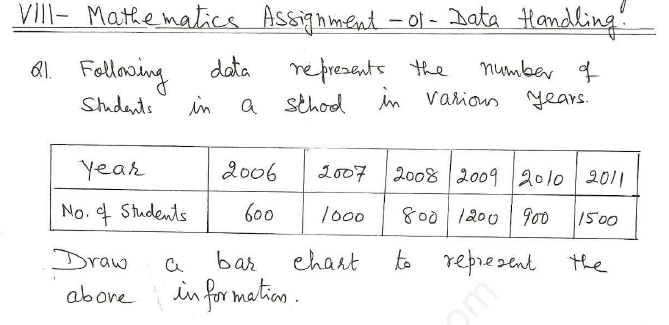 VIII- Mathematics Assignment - 01 - Data Handling!
Q1. Following data represents the number of
Students in a school in various years.
Year 2006 2007 2008 2009 2010 2011
No. of Students 600 1000 800 1200 900 1500
Draw a bar chart to represent the
above information.
om